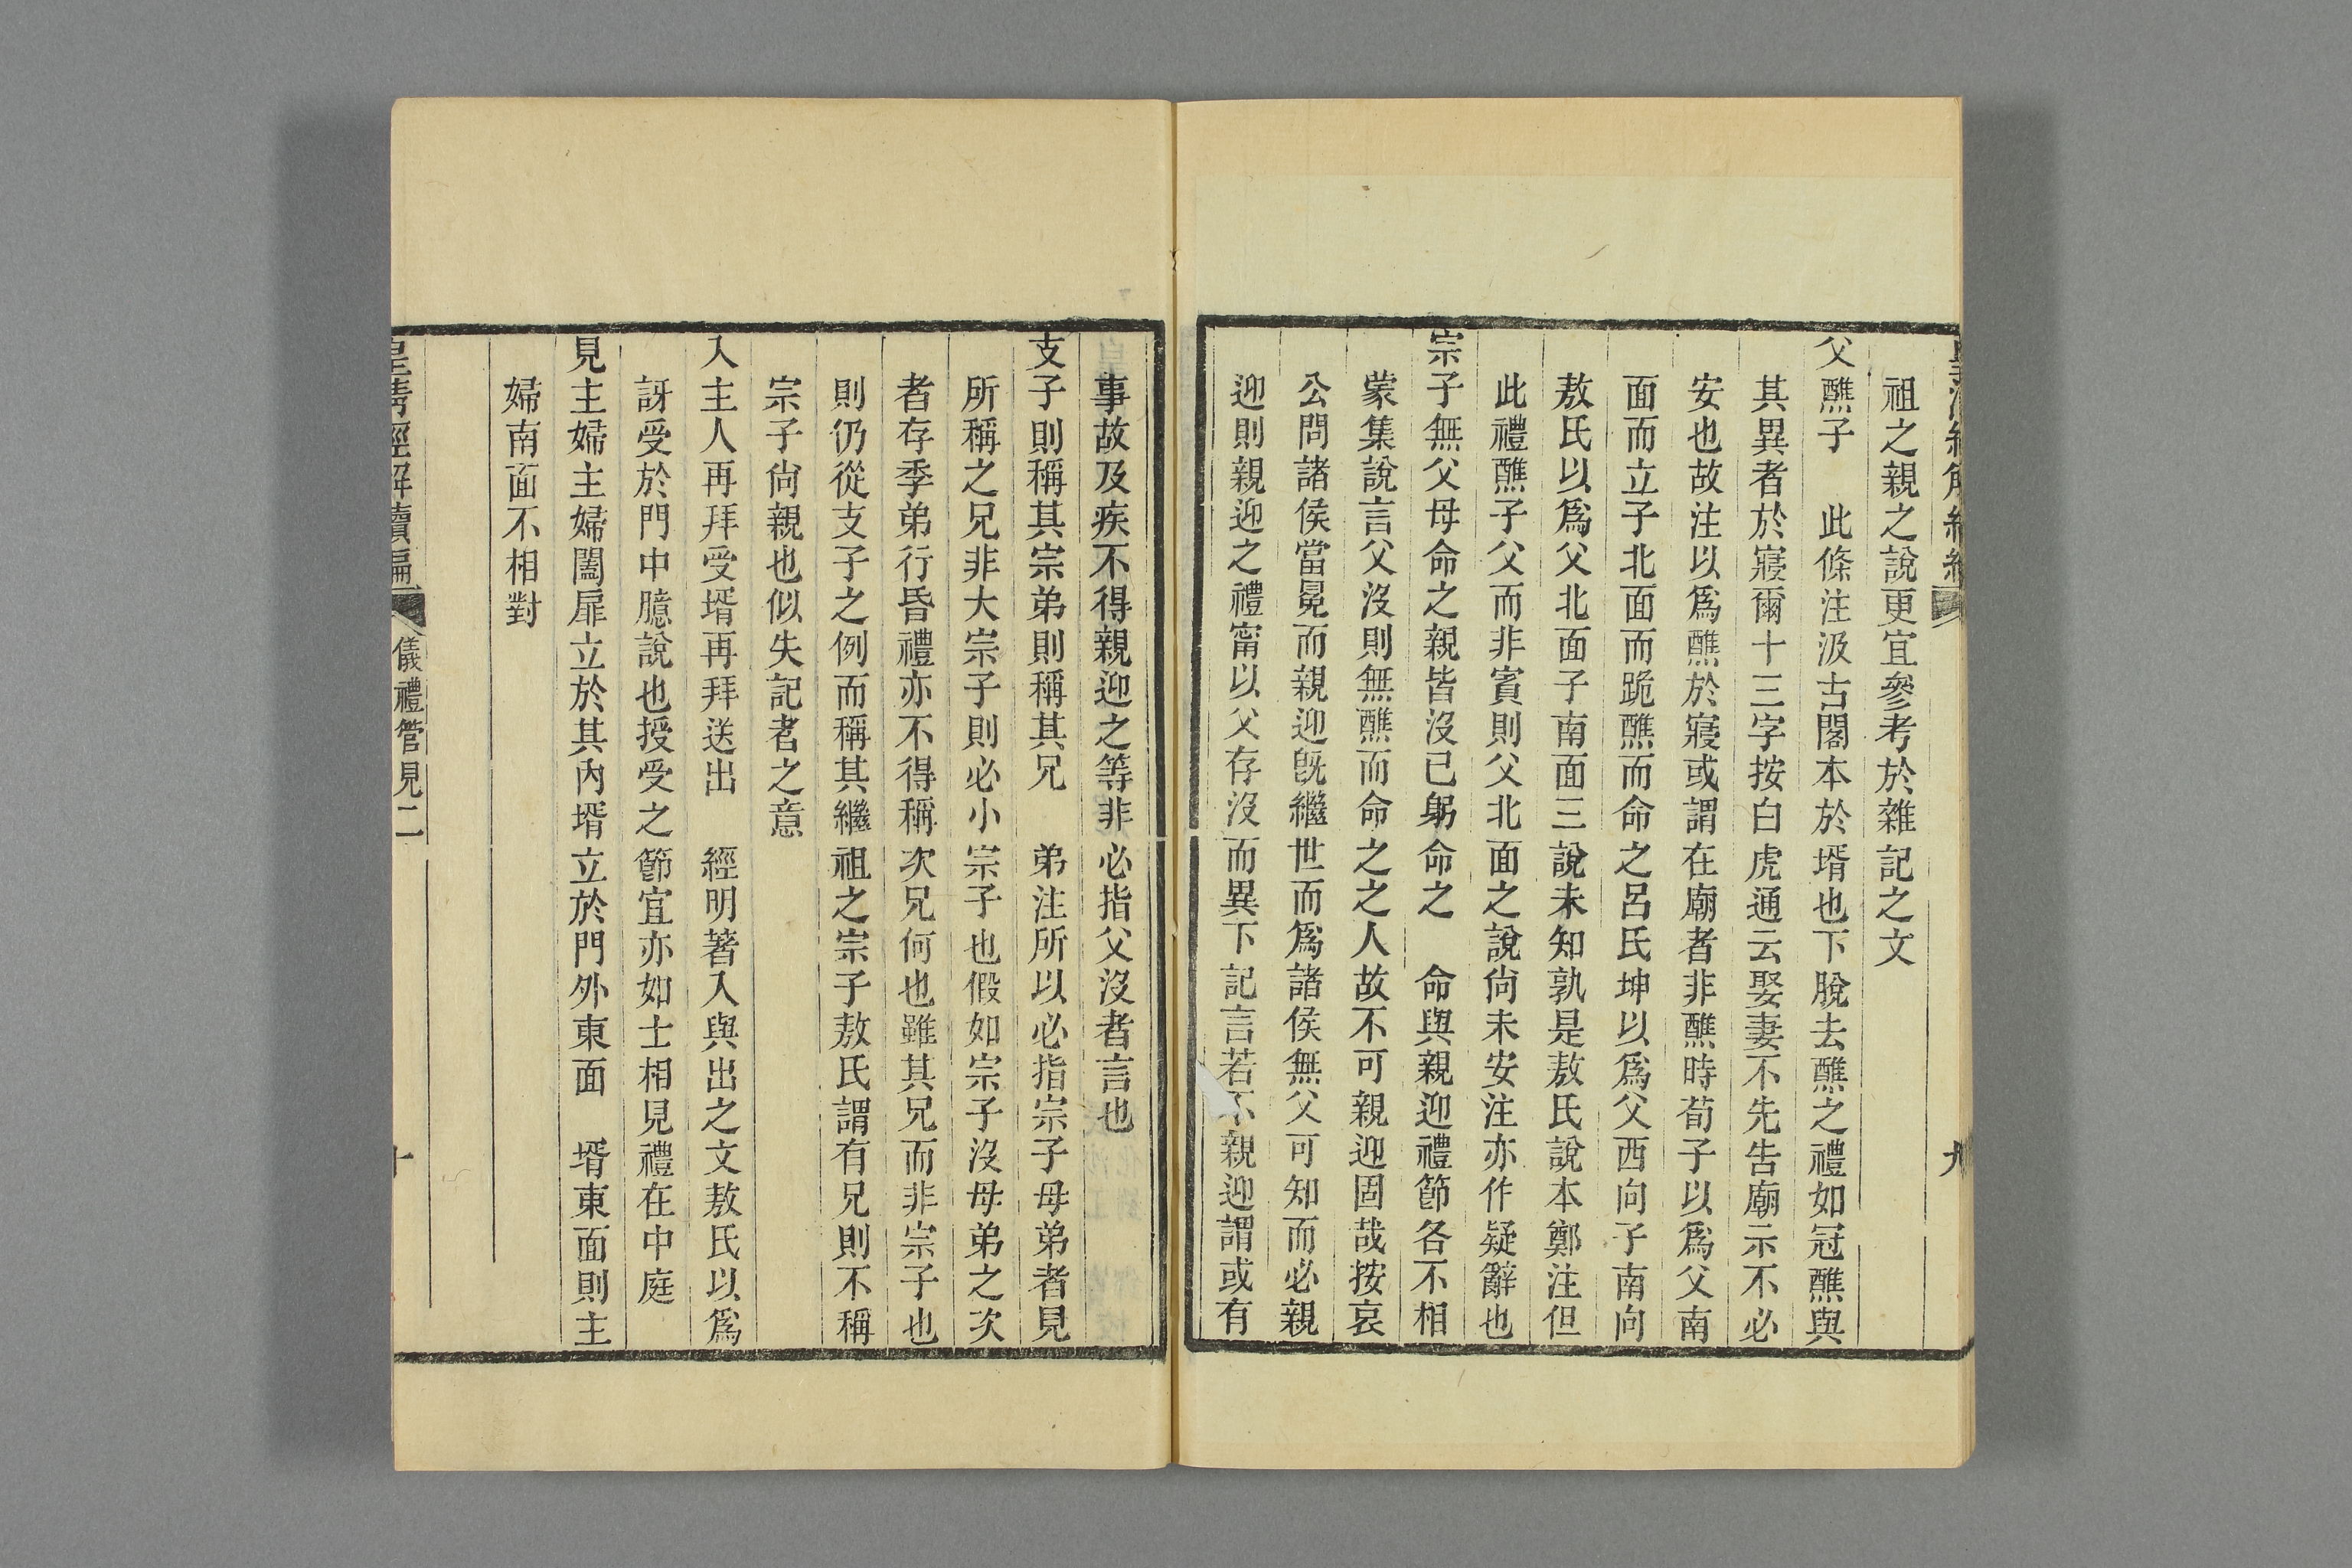 祖之親之說更宜參考於雜記之文
父醮子　此條注汲古閣本於壻也下脫去醮之禮如冠醮與
其異者於寢爾十三字按白虎通云娶妻不先告廟示不必
安也故注以爲醮於寢或謂在廟者非醮時荀子以爲父南
面而立子北面而跪醮而命之呂氏坤以爲父西向子南向
敖氏以爲父北面子南面三說未知孰是敖氏說本鄭注但
此禮醮子父而非賓則父北面之說尙未安注亦作疑辭也
宗子無父母命之親皆沒已躬命之　命與親迎禮節各不相
蒙集說言父沒則無醮而命之之人故不可親迎固哉按哀
公問諸侯當冕而親迎旣繼世而爲諸侯無父可知而必親
迎則親迎之禮甯以父存沒而異下記言若不親迎謂或有
九
事故及疾不得親迎之等非必指父沒者言也
支子則稱其宗弟則稱其兄　弟注所以必指宗子母弟者見
所稱之兄非大宗子則必小宗子也假如宗子沒母弟之次
者存季弟行昏禮亦不得稱次兄何也雖其兄而非宗子也
則仍從支子之例而稱其繼祖之宗子敖氏謂有兄則不稱
宗子尙親也似失記者之意
入主人再拜受壻再拜送出　經明著入與出之文敖氏以爲
訝受於門中臆說也授受之節宜亦如士相見禮在中庭
見主婦主婦闔扉立於其內壻立於門外東面　壻東面則主
婦南面不相對
皇清經解續編　儀禮管見二　十